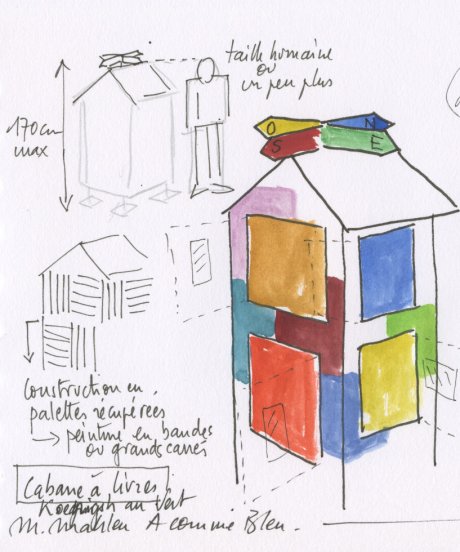 taille humaine
ou
un peu plus
170cm
max
O N
S E
Construction en
palettes récupérées
→ peinture en bandes
ou grands carrés
Cabane à livres
au Vert
A comme Bleu.